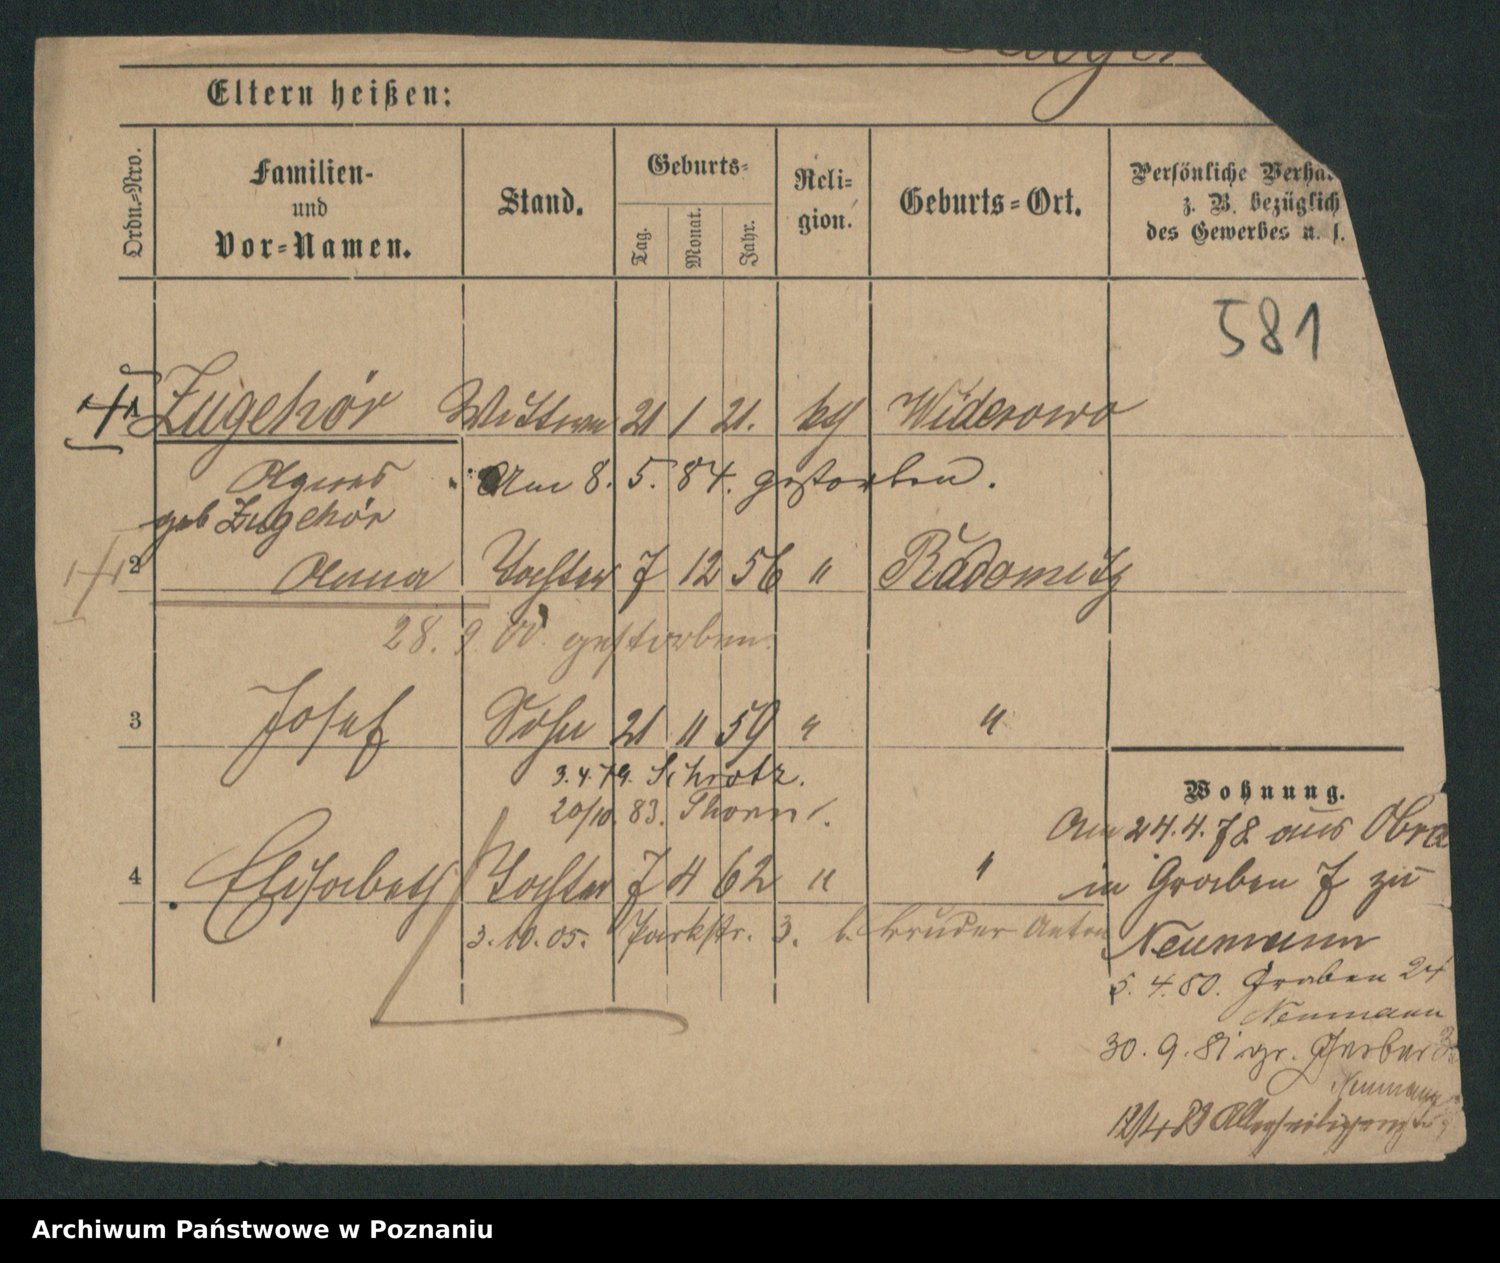 Eltern heißen:
Ordn.=Nro.
Familien-
und
Vor=Namen.
Stand.
Geburts=
Tag.
Monat.
Jahr.
Reli=
gion.
Geburts=Ort.
Persönliche Verhä
z. B. bezüglich
des Gewerbes u. s.
581
Zugehör Wittwe 21 1 21. kth Widerowo
Agnes Am 8. 5. 84. gestorben.
geb Zugehör
2 Anna Tochter 7 12 56 " Radomitz
28. 9. 00. gestorben.
3 Josef Sohn 21 11 59 " "
3.4.79. Schrotz.
20/10. 83. Thorn.
Wohnung.
Am 24.4.78 aus Obra
4 Elisabeth Tochter 7 4 62 " "
in Graben 7 zu
3. 10. 05. Parkstr. 3. b. Bruder Anton
Neumann
5. 4. 80. Graben 24
Neumann
30. 9. 81 gr. Gerber
Neumann
12/4 Allerheiligenstr
Archiwum Państwowe w Poznaniu